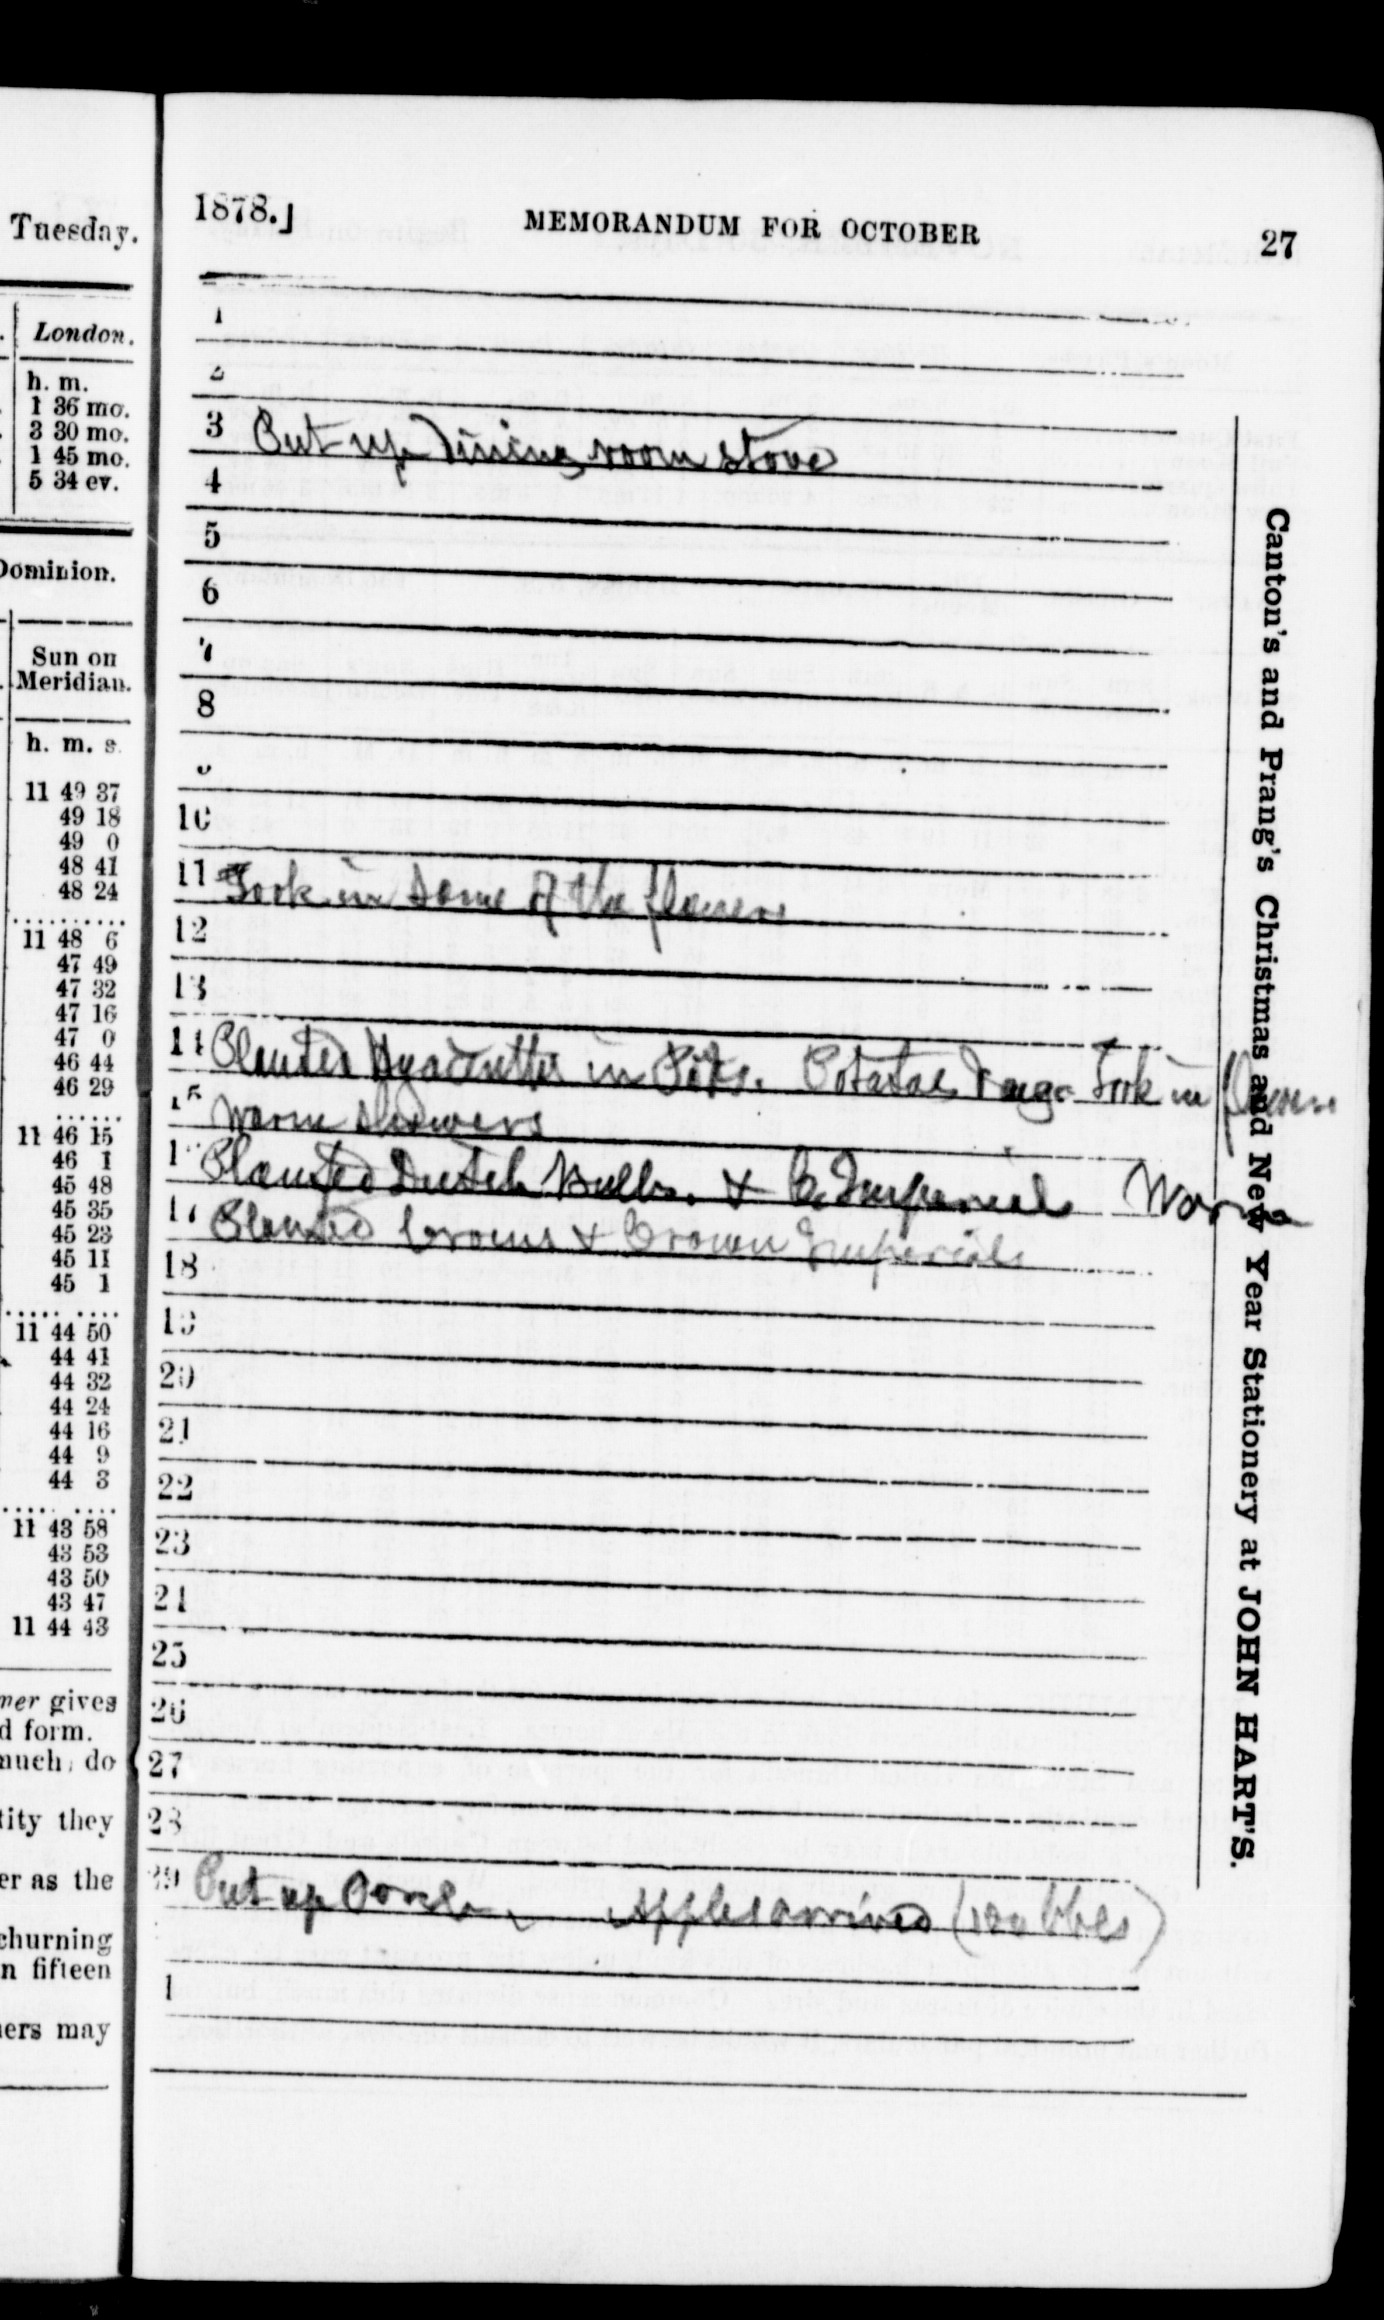 Tuesday.
London.
h. m.
1 36 mo.
3 30 mo.
1 45 mo.
5 34 ev.
Dominion.
Sun on
Meridian.
h. m. s.
11 49 37
49 18
49 0
48 41
48 24
11 48 6
47 49
47 32
47 16
47 0
46 44
46 29
11 46 15
46 1
45 48
45 35
45 23
45 11
45 1
11 44 50
44 41
44 32
44 24
44 16
44 9
44 3
11 43 58
43 53
43 50
43 47
11 44 43
mer gives
d form.
much, do
tity they
er as the
churning
n fifteen
ers may
1878.]
MEMORANDUM FOR OCTOBER
27
1
2
3 Put up Dining room stove
4
5
6
7
8
9
10
11 Took in some of the flowers
12
13
14 Planted Hyacinths in Pots. Potatoes dug. Took in flowers
15 Warm showers
1 Planted Dutch Bulbs. & C. Imperials Warm
17 Planted Crocus & Crown Imperials
18
19
20
21
22
23
24
25
26
27
28
29 Put up Porch Apples arrived (120 bbls)
1
Canton's and Prang's Christmas and New Year Stationery at JOHN HART'S.